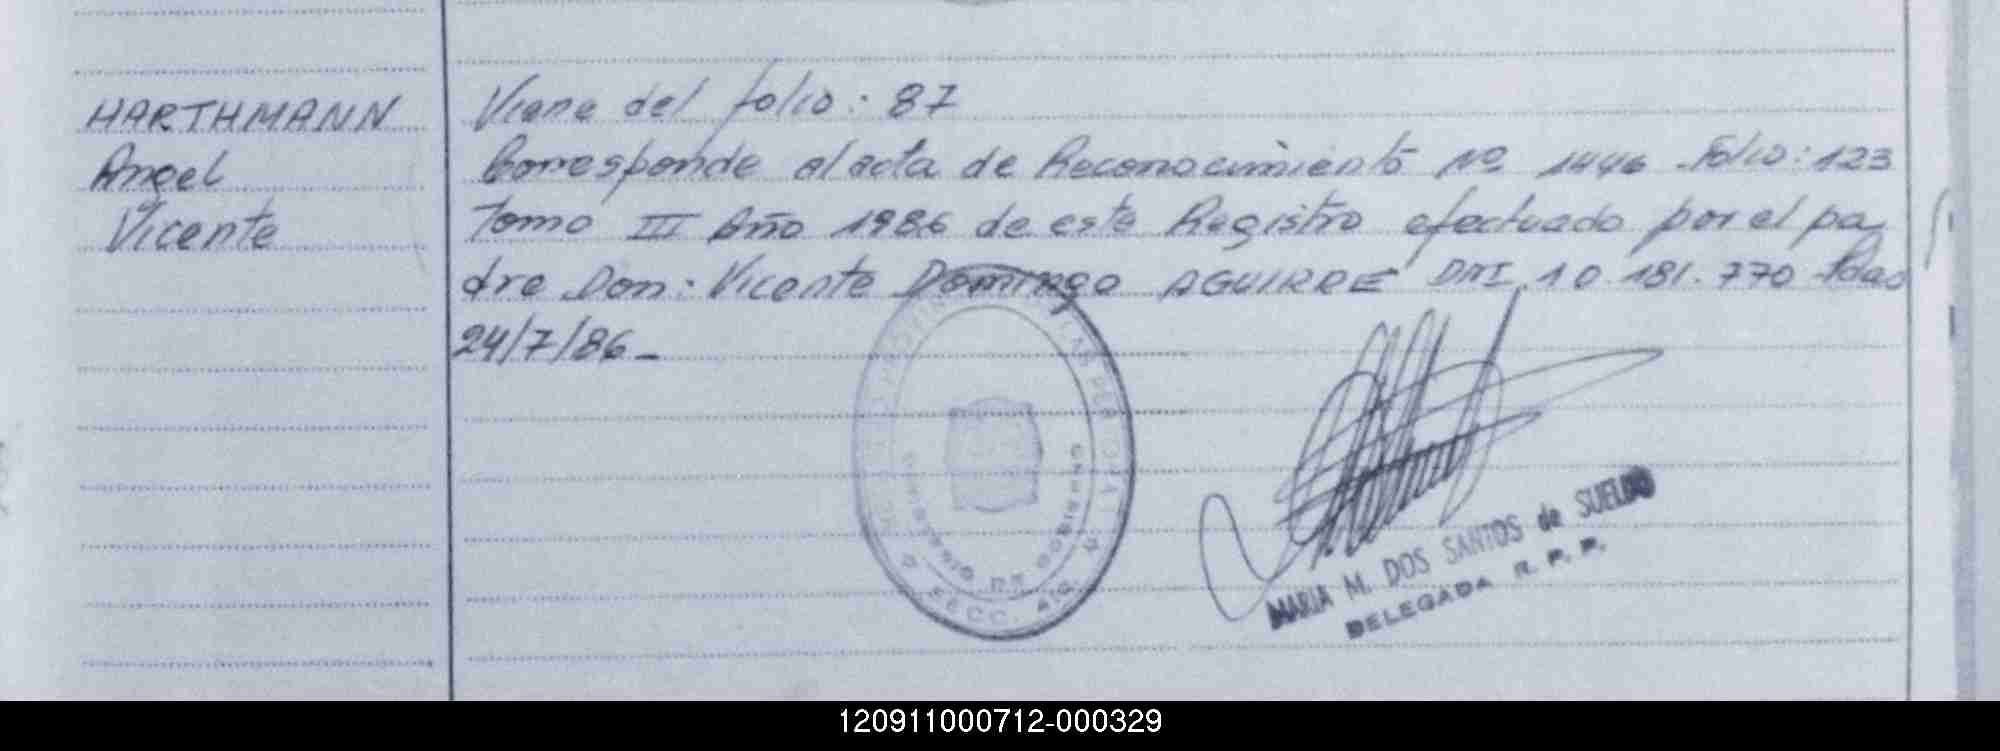 HARTHMANN
Angel
Vicente
Viene del folio: 87
Corresponde al acta de Reconocimiento Nº 1446 Folio: 123
Tomo III Año 1986 de este Registro efectuado por el pa
dre Don: Vicente Domingo AGUIRRE DNI 10.181.770
24/7/86_
MARIA M. DOS SANTOS de SUELDO
DELEGADA R. P. P.
120911000712-000329